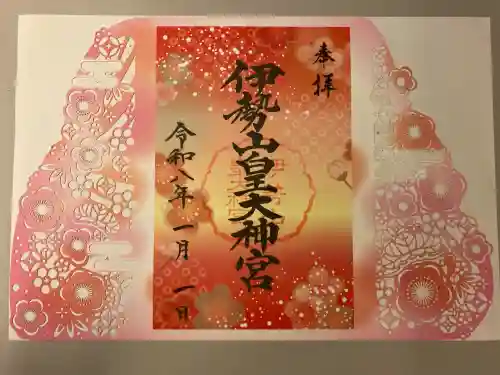 奉拝
伊勢山皇大神宮
令和八年 一月 一日